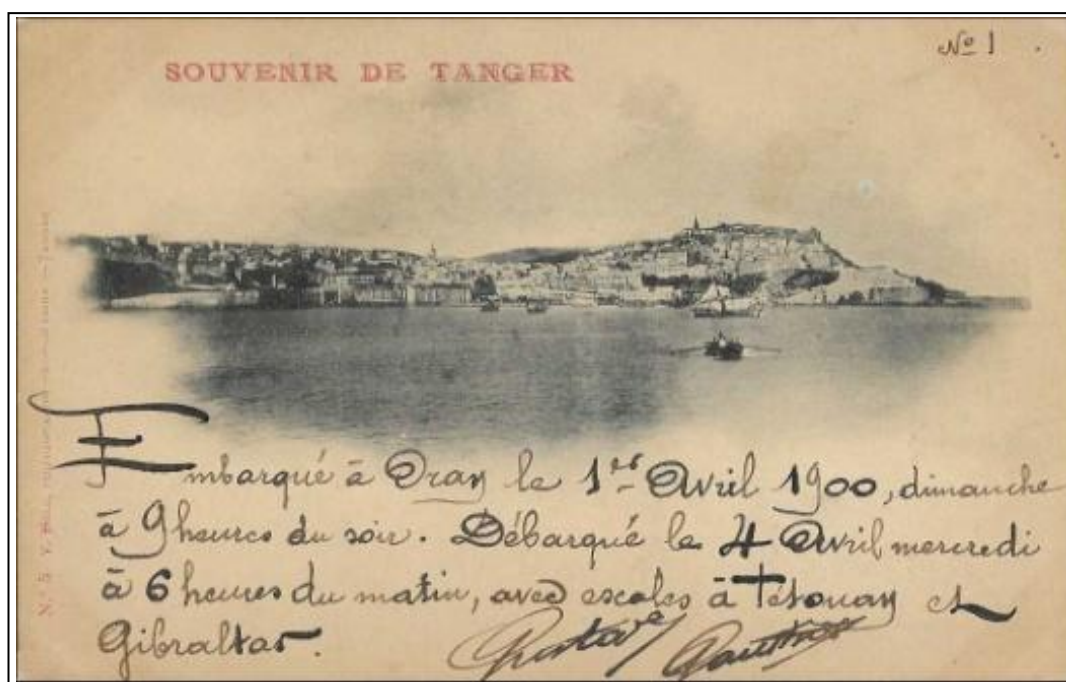 Nº 1
SOUVENIR DE TANGER
Embarqué à Oran le 1er Avril 1900, dimanche
à 9 heures du soir. Débarqué le 4 Avril mercredi
à 6 heures du matin, avec escales à Tétouan et
Gibraltar.
Gustave